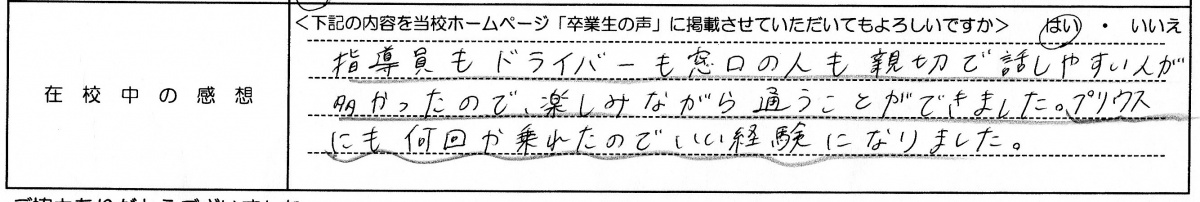 <下記の内容を当校ホームページ「卒業生の声」に掲載させていただいてもよろしいですか> はい ・ いいえ
在校中の感想
指導員もドライバーも窓口の人も親切で話しやすい人が
多かったので、楽しみながら通うことができました。プリウス
にも何回か乗れたのでいい経験になりました。